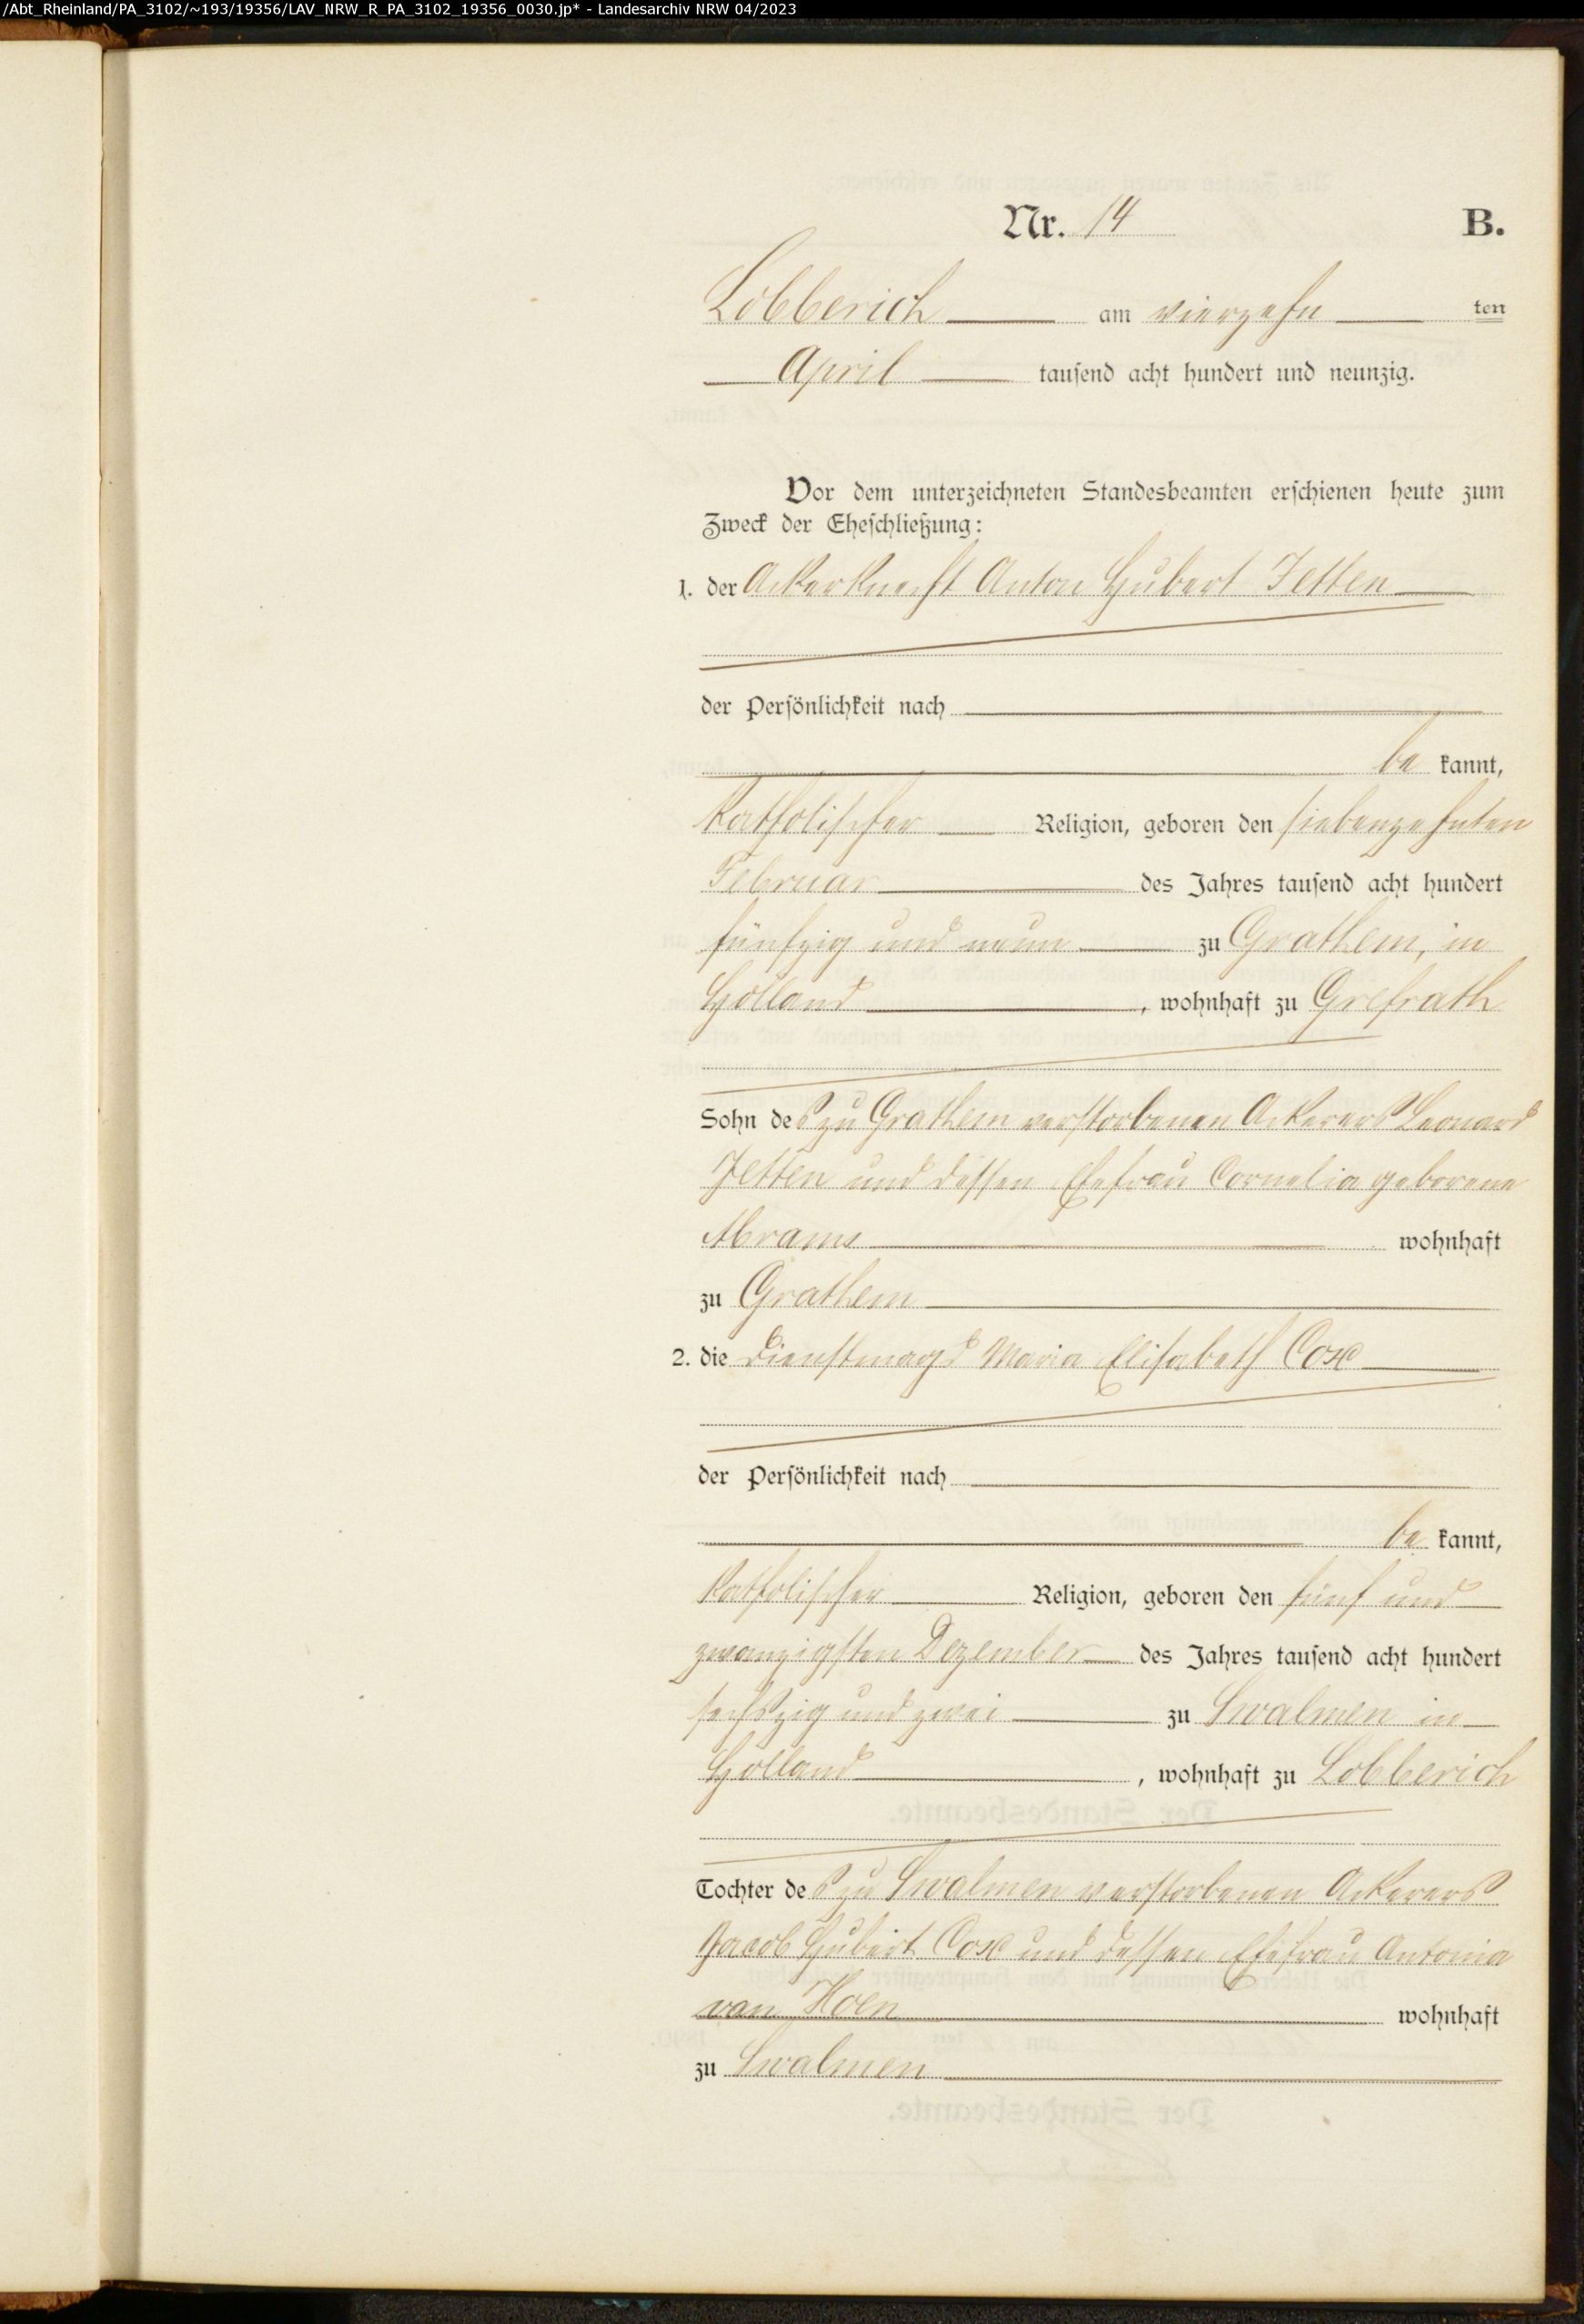 /Abt_Rheinland/PA_3102/~193/19356/LAV_NRW_R_PA_3102_19356_0030.jp* - Landesarchiv NRW 04/2023
Nr. 14 B.
Lobberich am vierzehn ten
April tausend acht hundert und neunzig.
Vor dem unterzeichneten Standesbeamten erschienen heute zum
Zweck der Eheschließung:
1. der Ackerknecht Anton Hubert Jetten
der Persönlichkeit nach
be kannt,
katholischer Religion, geboren den siebenzehnten
Februar des Jahres tausend acht hundert
fünfzig und neun zu Grathem, in
Holland, wohnhaft zu Grefrath
Sohn des zu Grathem verstorbenen Ackerers Leonard
Jetten und dessen Ehefrau Cornelia geborene
Abrams wohnhaft
zu Grathem
2. die Dienstmagd Maria Elisabeth Cox
der Persönlichkeit nach
be kannt,
katholischer Religion, geboren den fünf und
zwanzigsten Dezember des Jahres tausend acht hundert
sechszig und zwei zu Swalmen in
Holland, wohnhaft zu Lobberich
Tochter des zu Swalmen verstorbenen Ackerers
Jacob Hubert Cox und dessen Ehefrau Antonia
van Hoen wohnhaft
zu Swalmen